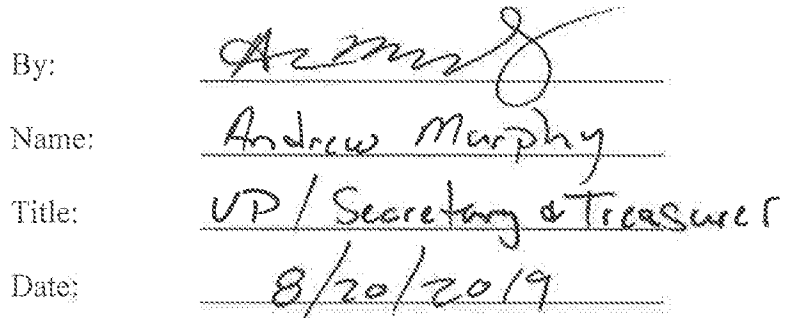 By:
Name: Andrew Murphy
Title: VP / Secretary & Treasurer
Date: 8/20/2019